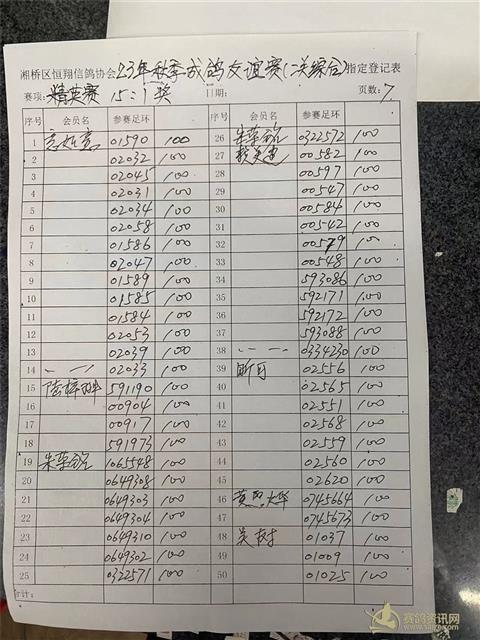 湘桥区恒翔信鸽协会23年秋季成鸽友谊赛(二关综合)指定登记表
赛项:精英赛 15:1奖 日期: 页数:7
序号 会员名 参赛足环 序号 会员名 参赛足环
1 01590 100 26 朱荣 0322572 100
2 02032 100 27 00582 100
3 02045 100 28 00597 100
4 02031 100 29 00547 100
5 02034 100 30 00584 100
6 02058 100 31 00542 100
7 01586 100 32 00579 100
8 02047 100 33 00548 100
9 01589 100 34 593086 100
10 01585 100 35 592171 100
11 01584 100 36 592172 100
12 02053 100 37 593088 100
13 02039 100 38 0334230 100
14 02033 100 39 02556 100
15 591190 100 40 02565 100
16 00904 100 41 02551 100
17 00917 100 42 02568 100
18 591973 100 43 02559 100
19 朱荣 1065548 100 44 02560 100
20 0649308 100 45 02620 100
21 0649303 100 46 0745664 100
22 0649304 100 47 0745673 100
23 0649310 100 48 吴树 01037 100
24 0649302 100 49 01009 100
25 0322571 100 50 01025 100
合计:
赛鸽资讯网